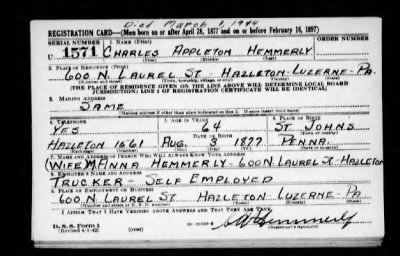 Died March 1, 1944
REGISTRATION CARD—(Men born on or after April 28, 1877 and on or before February 16, 1897)
SERIAL NUMBER 1. NAME (Print) ORDER NUMBER
U 1571 CHARLES APPLETON HEMMERLY
(First) (Middle) (Last)
2. PLACE OF RESIDENCE (Print)
600 N. LAUREL ST. HAZLETON-LUZERNE-PA.
(Number and street) (Town, township, village, or city) (County) (State)
[THE PLACE OF RESIDENCE GIVEN ON THE LINE ABOVE WILL DETERMINE LOCAL BOARD
JURISDICTION; LINE 2 OF REGISTRATION CERTIFICATE WILL BE IDENTICAL]
3. MAILING ADDRESS
SAME
[Mailing address if other than place indicated on line 2. If same insert word same]
4. TELEPHONE 5. AGE IN YEARS 6. PLACE OF BIRTH
YES 64 ST. JOHNS
DATE OF BIRTH
HAZLETON 1661 AUG. 3 1877 PENNA.
7. NAME AND ADDRESS OF PERSON WHO WILL ALWAYS KNOW YOUR ADDRESS
(WIFE) ANNA HEMMERLY-600 N. LAUREL ST. HAZLETON
8. EMPLOYER'S NAME AND ADDRESS
TRUCKER - SELF EMPLOYED
9. PLACE OF EMPLOYMENT OR BUSINESS
600 N. LAUREL ST HAZLETON LUZERNE-PA
(Number and street or R. F. D. number) (Town) (County) (State)
I AFFIRM THAT I HAVE VERIFIED ABOVE ANSWERS AND THAT THEY ARE TRUE.
D. S. S. Form 1
(Revised 4-1-42) (Registrant's signature)